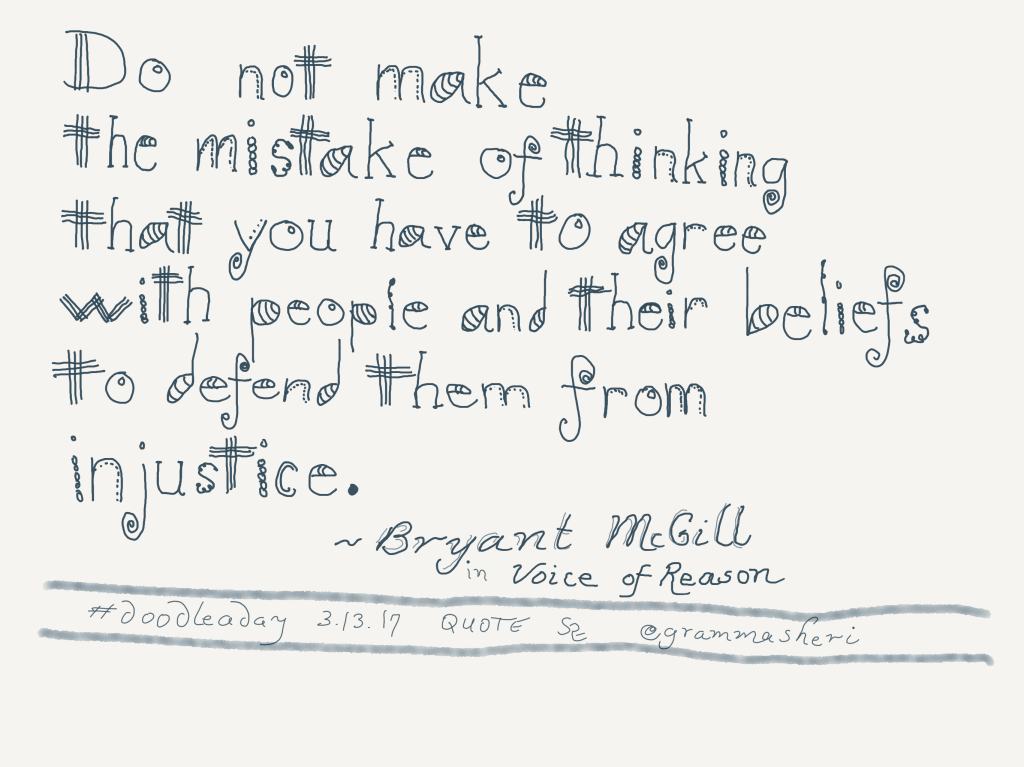 Do not make
the mistake of thinking
that you have to agree
with people and their beliefs
to defend them from
injustice.
~ Bryant McGill
in Voice of Reason
#doodleaday 3.13.17 QUOTE @grammasheri